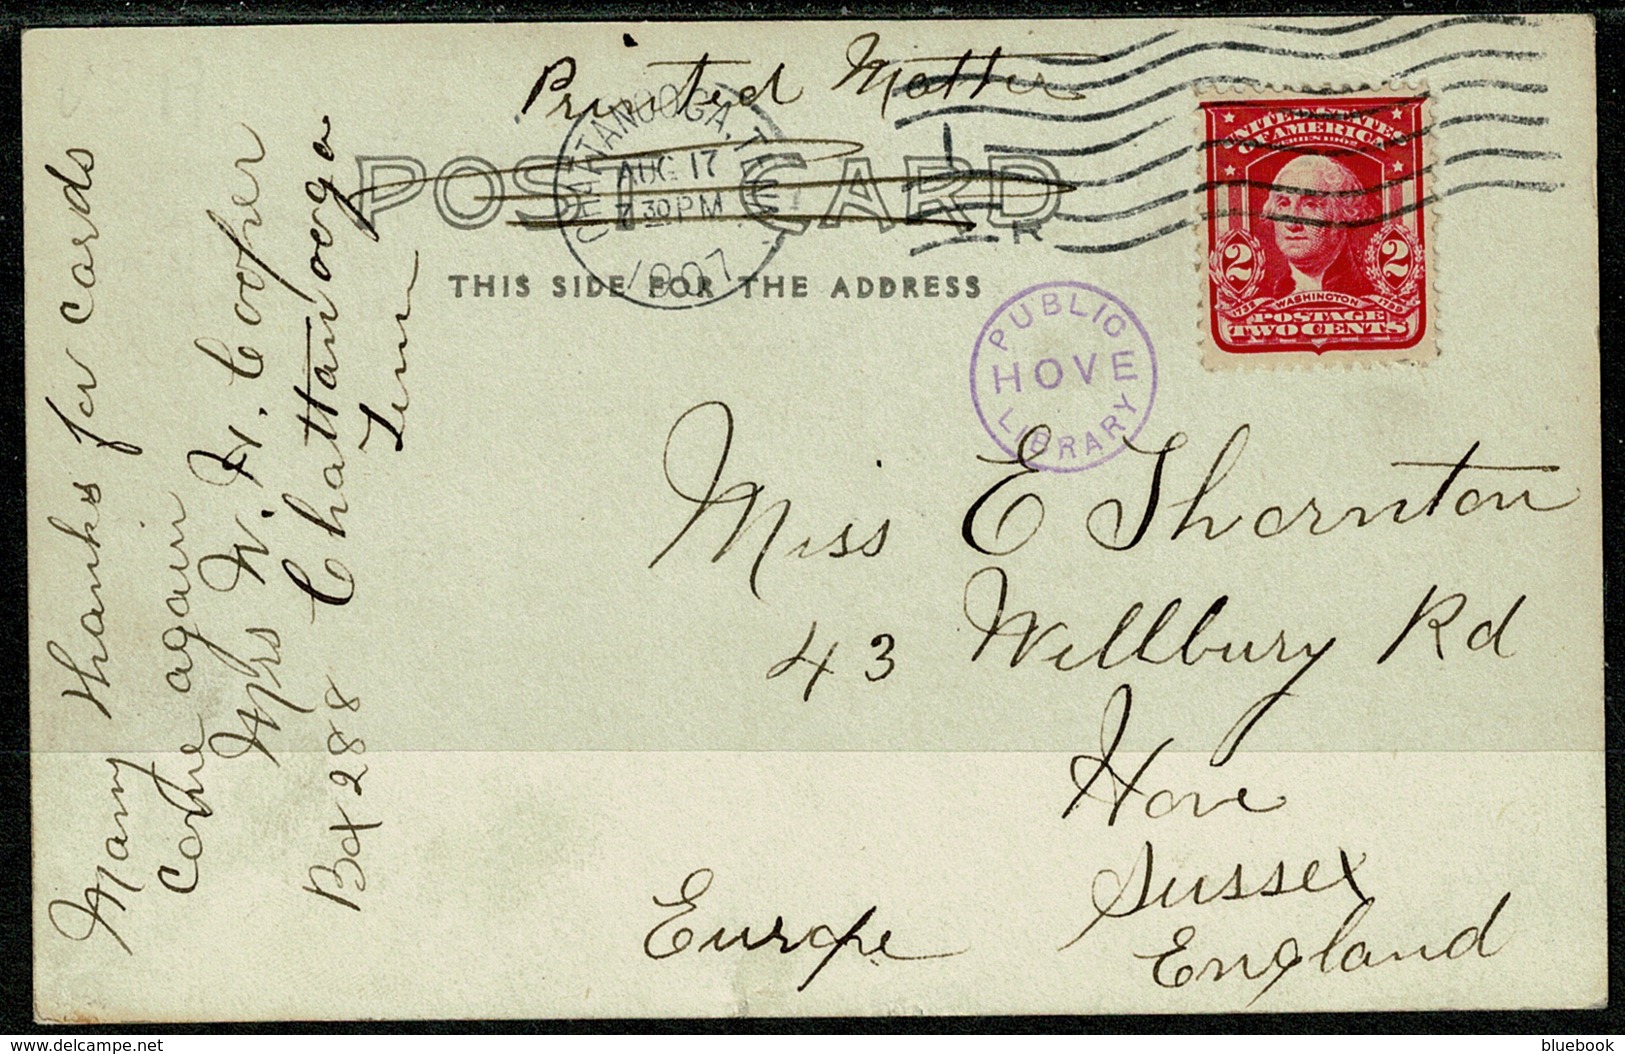 Printed Matter
POST CARD
THIS SIDE FOR THE ADDRESS
CHATTANOOGA, TENN.
AUG 17
7 30 PM
1907
UNITED STATES
OF AMERICA
2 2
1732 WASHINGTON 1799
POSTAGE
TWO CENTS
PUBLIC
HOVE
LIBRARY
Miss E Thornton
43 Wellbury Rd
Hove
Sussex
England
Europe
Many thanks for cards
Come again
Mrs W. H. Cooper
Box 288 Chattanooga
Tenn
delcampe.net
bluebook